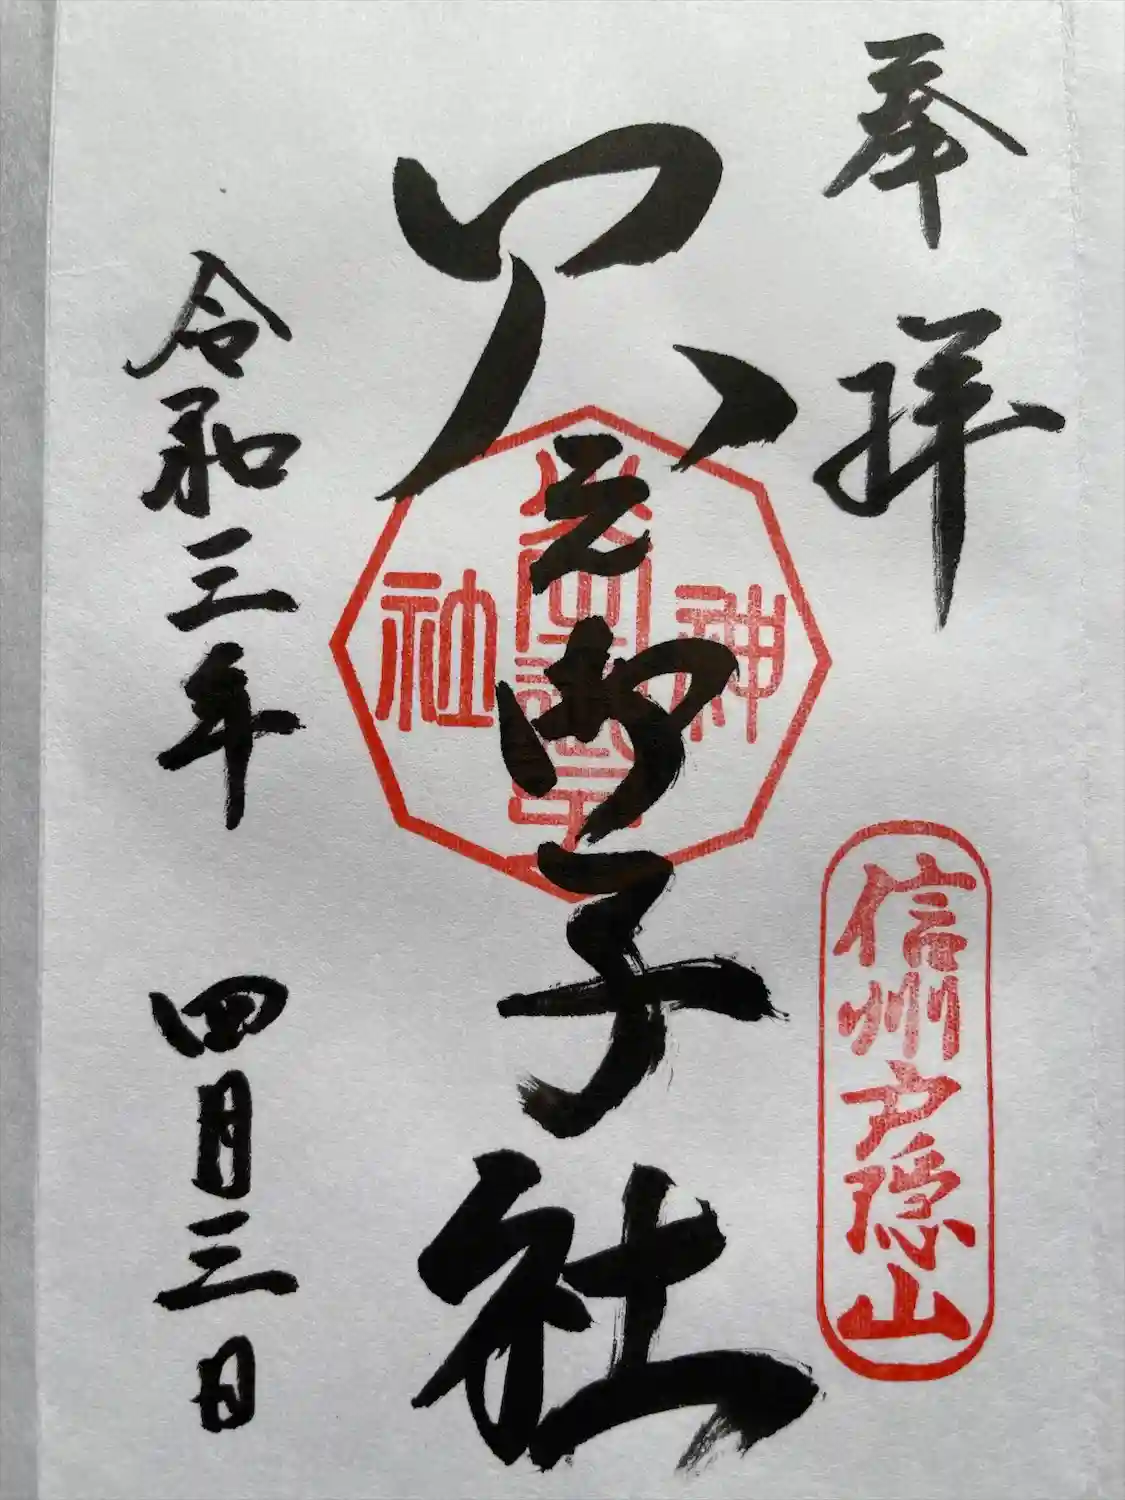 奉拝
信州戸隠山
火之御子社
神
社
令和三年 四月三日